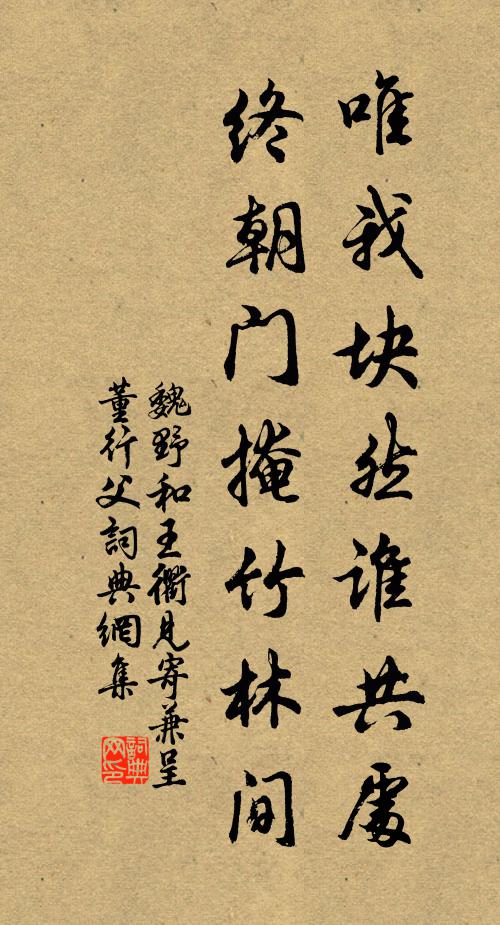 唯我块然谁共处
终朝门掩竹林间
魏野和王衢見寄兼呈
董行父詞典網集
詞典
网印